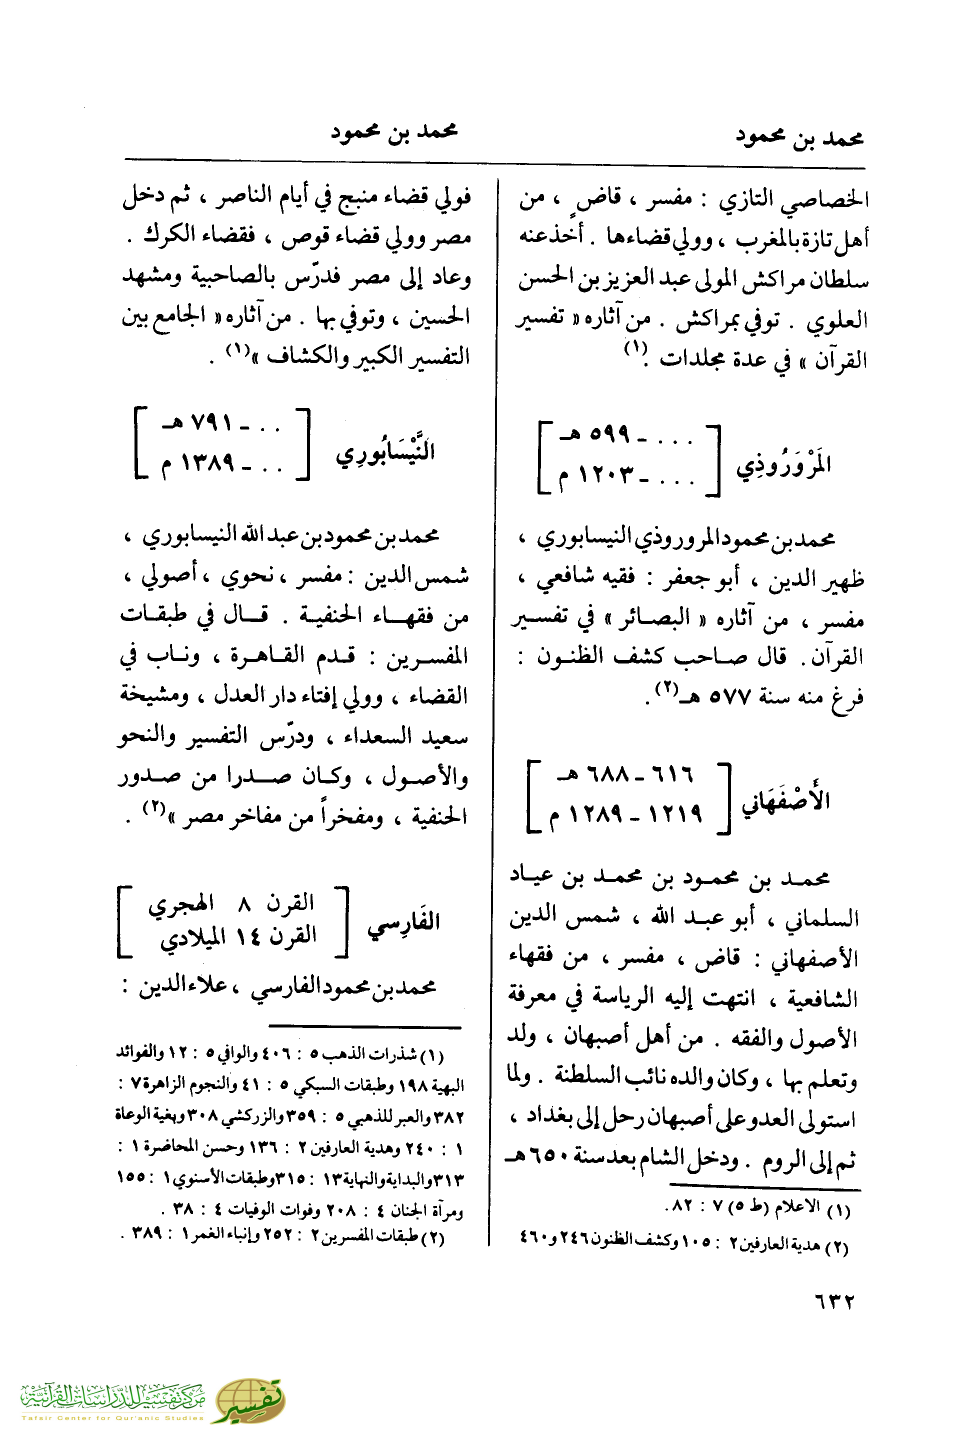 محمد بن محمود
محمد بن محمود
الخصاصي التازي : مفسر ، قاضٍ ، من
أهل تازة بالمغرب ، وولي قضاءها . أخذ عنه
سلطان مراكش المولى عبد العزيز بن الحسن
العلوي . توفي بمراكش . من آثاره « تفسير
القرآن » في عدة مجلدات .(١)
المَرْوَرُوذِي
[ . . . ـ ٥٩٩ هـ
. . . ـ ١٢٠٣ م ]
محمد بن محمود المروروذي النيسابوري ،
ظهير الدين ، أبو جعفر : فقيه شافعي ،
مفسر ، من آثاره « البصائر » في تفسير
القرآن. قال صاحب كشف الظنون :
فرغ منه سنة ٥٧٧ هـ(٢).
الأَصْفَهَاني
[ ٦١٦ ـ ٦٨٨ هـ
١٢١٩ ـ ١٢٨٩ م ]
محمد بن محمود بن محمد بن عياد
السلماني ، أبو عبد الله ، شمس الدين
الأصفهاني : قاض ، مفسر ، من فقهاء
الشافعية ، انتهت إليه الرياسة في معرفة
الأصول والفقه . من أهل أصبهان ، ولد
وتعلم بها ، وكان والده نائب السلطنة . ولما
استولى العدو على أصبهان رحل إلى بغداد ،
ثم إلى الروم . ودخل الشام بعد سنة ٦٥٠ هـ
(١) الاعلام (ط ٥) ٧ : ٨٢.
(٢) هدية العارفين ٢ : ١٠٥ وكشف الظنون ٢٤٦ و ٤٦٠
فولي قضاء منبج في أيام الناصر ، ثم دخل
مصر وولي قضاء قوص ، فقضاء الكرك .
وعاد إلى مصر فدرّس بالصاحبية ومشهد
الحسين ، وتوفي بها . من آثاره « الجامع بين
التفسير الكبير والكشاف »(١) .
النَّيْسَابُورِي
[ . . ـ ٧٩١ هـ
. . ـ ١٣٨٩ م ]
محمد بن محمود بن عبد الله النيسابوري ،
شمس الدين : مفسر ، نحوي ، أصولي ،
من فقهاء الحنفية . قال في طبقات
المفسرين : قدم القاهرة ، وناب في
القضاء ، وولي إفتاء دار العدل ، ومشيخة
سعيد السعداء ، ودرّس التفسير والنحو
والأصول ، وكان صدرا من صدور
الحنفية ، ومفخراً من مفاخر مصر »(٢) .
الفَارِسي
[ القرن ٨ الهجري
القرن ١٤ الميلادي ]
محمد بن محمود الفارسي ، علاء الدين :
(١) شذرات الذهب ٥ : ٤٠٦ والوافي ٥ : ١٢ والفوائد
البهية ١٩٨ وطبقات السبكي ٥ : ٤١ والنجوم الزاهرة ٧ :
٣٨٢ والعبر للذهبي ٥ : ٣٥٩ والزركشي ٣٠٨ وبغية الوعاة
١ : ٢٤٠ وهدية العارفين ٢ : ١٣٦ وحسن المحاضرة ١ :
٣١٣ والبداية والنهاية ١٣ : ٣١٥ وطبقات الأسنوي ١ : ١٥٥
ومرآة الجنان ٤ : ٢٠٨ وفوات الوفيات ٤ : ٣٨ .
(٢) طبقات المفسرين ٢ : ٢٥٢ وإنباء الغمر ١ : ٣٨٩ .
٦٣٢
مركز تفسير للدراسات القرآنية
Tafsir Center for Qur'anic Studies
تفسير